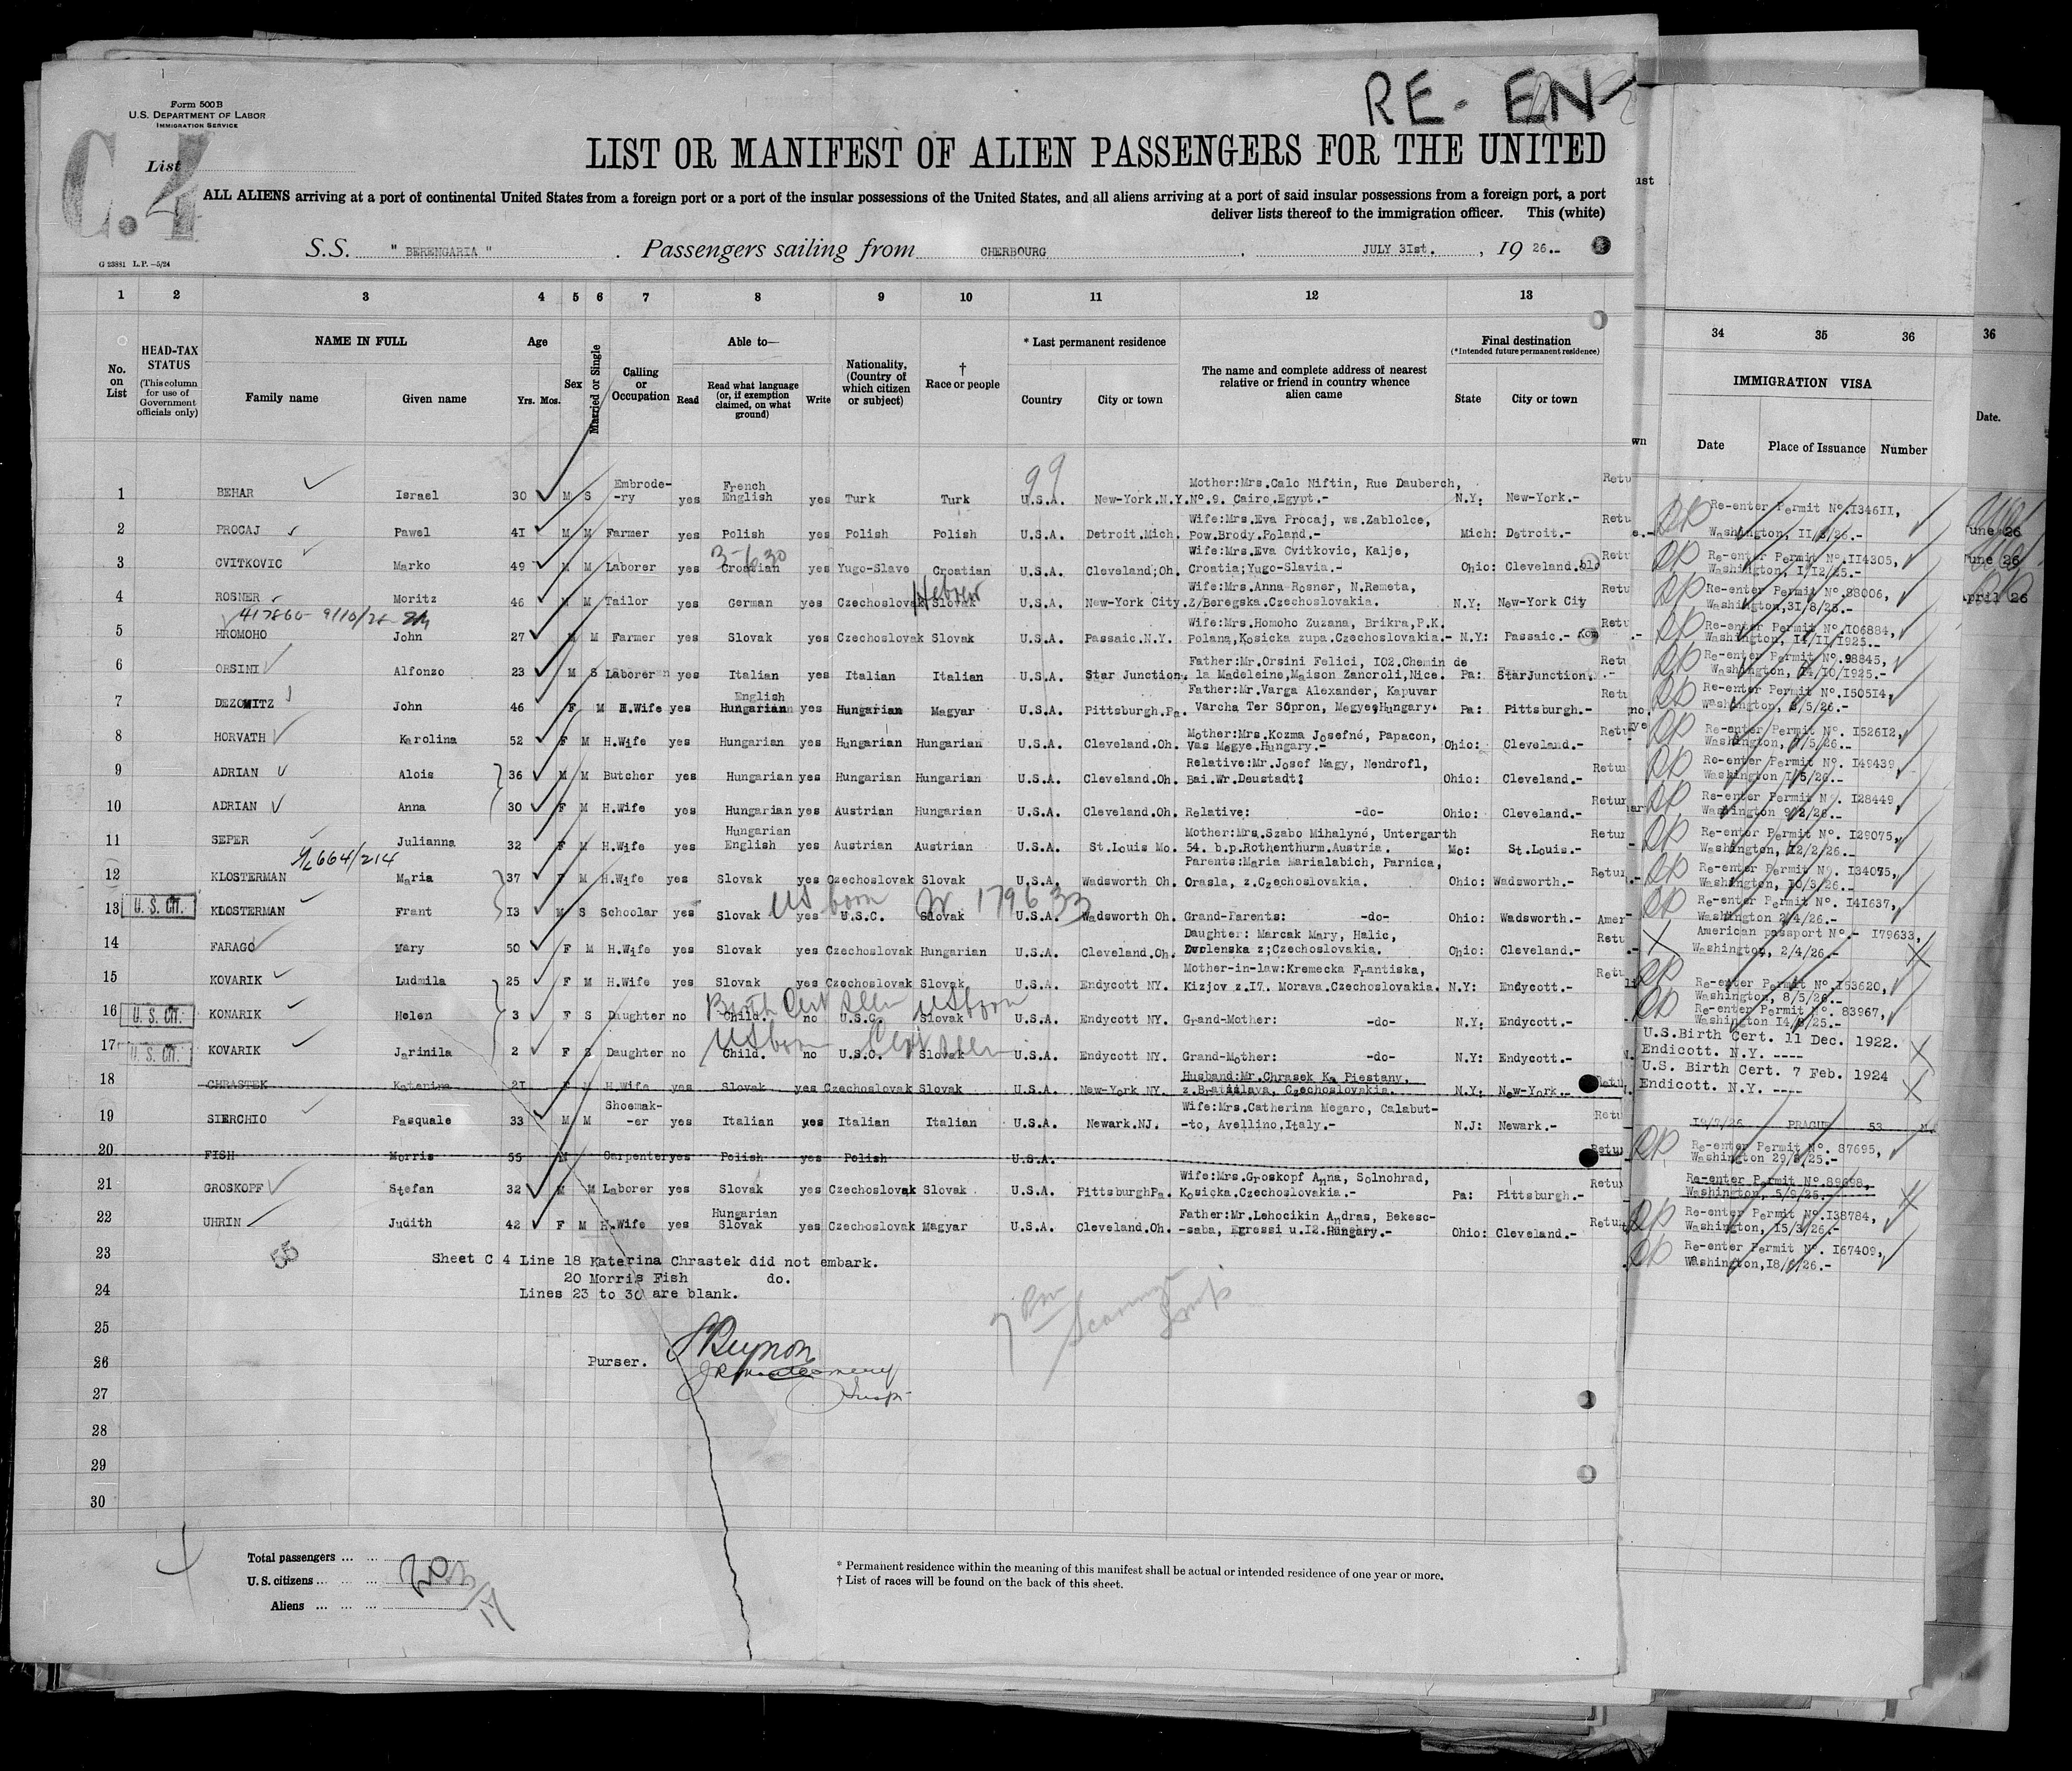 RE- EN-
Form 500 B
U.S. DEPARTMENT OF LABOR
IMMIGRATION SERVICE
C.4
List
LIST OR MANIFEST OF ALIEN PASSENGERS FOR THE UNITED
ALL ALIENS arriving at a port of continental United States from a foreign port or a port of the insular possessions of the United States, and all aliens arriving at a port of said insular possessions from a foreign port, a port
deliver lists thereof to the immigration officer. This (white)
S.S. " BERENGARIA " . Passengers sailing from CHERBOURG . JULY 31st. , 19 26.-
G 23881 L.P.—5/24
1 2 3 4 5 6 7 8 9 10 11 12 13
No. on List
HEAD-TAX STATUS (This column for use of Government officials only)
NAME IN FULL
Family name Given name
Age
Yrs. Mos.
Sex
Married or Single
Calling or Occupation
Able to—
Read Read what language (or, if exemption claimed, on what ground) Write
Nationality, (Country of which citizen or subject)
† Race or people
* Last permanent residence
Country City or town
The name and complete address of nearest relative or friend in country whence alien came
Final destination
(*Intended future permanent residence)
State City or town
34 35 36
IMMIGRATION VISA
Date Place of Issuance Number
36
Date.
99
1 BEHAR Israel 30 M S Embrode- -ry yes French English yes Turk Turk U.S.A. New-York.N.Y. Mother:Mrs.Calo Niftin, Rue Dauberch, Nº.9. Cairo.Egypt.- N.Y: New-York.- Retu
2 PROCAJ Pawel 41 M M Farmer yes Polish yes Polish Polish U.S.A. Detroit.Mich. Wife:Mrs.Eva Procaj, ws.Zablolce, Pow.Brody.Poland.- Mich: Detroit.- Retu
3-630
3 CVITKOVIC Marko 49 M M Laborer yes Croatian yes Yugo-Slave Croatian U.S.A. Cleveland;Oh. Wife:Mrs.Eva Cvitkovic, Kalje, Croatia;Yugo-Slavia.- Ohio: Cleveland. Retu
Hebrew
4 ROSNER Moritz 46 M M Tailor yes German yes Czechoslovak Slovak U.S.A. New-York City. Wife:Mrs.Anna Rosner, N.Remeta, Z/Beregska.Czechoslovakia. N.Y: New-York City Retu
5 HROMOHO John 27 M M Farmer yes Slovak yes Czechoslovak Slovak U.S.A. Passaic.N.Y. Wife:Mrs.Homoho Zuzana, Brikra,P.K. Polana,Kosicka zupa.Czechoslovakia.- N.Y: Passaic.- Retu
6 ORSINI Alfonzo 23 M S Laborer yes Italian yes Italian Italian U.S.A. Star Junction. Father:Mr.Orsini Felici, 102.Chemin de la Madeleine,Maison Zancroli,Nice. Pa: StarJunction. Retu
7 DEZOMITZ John 46 F M H.Wife yes English Hungarian yes Hungarian Magyar U.S.A. Pittsburgh.Pa. Father:Mr.Varga Alexander, Kapuvar Varcha Ter Sopron, Megye,Hungary. Pa: Pittsburgh.- Retu
8 HORVATH Karolina 52 F M H.Wife yes Hungarian yes Hungarian Hungarian U.S.A. Cleveland.Oh. Mother:Mrs.Kozma Josefné, Papacon, Vas Megye.Hungary.- Ohio: Cleveland.- Retu
9 ADRIAN Alois 36 M M Butcher yes Hungarian yes Hungarian Hungarian U.S.A. Cleveland.Oh. Relative:Mr.Josef Nagy, Nendrofl, Bai.Wr.Deustadt: Ohio: Cleveland.- Retur
10 ADRIAN Anna 30 F M H.Wife yes Hungarian yes Austrian Hungarian U.S.A. Cleveland.Oh. Relative: -do- Ohio: Cleveland.- Retur
11 SEPER Julianna 32 F M H.Wife yes Hungarian English yes Austrian Austrian U.S.A. St.Louis Mo. Mother:Mrs.Szabo Mihalyné, Untergarth 54. b.p.Rothenthurm.Austria. Mo: St.Louis.- Retur
12 KLOSTERMAN Maria 37 F M H.Wife yes Slovak yes Czechoslovak Slovak U.S.A. Wadsworth Oh. Parents:Maria Marialabich, Parnica, Orasla, z.Czechoslovakia. Ohio: Wadsworth.- Retur
US born 179633
13 U.S. CIT. KLOSTERMAN Frant 13 M S Schoolar yes Slovak yes U.S.C. Slovak U.S.A. Wadsworth Oh. Grand-Parents: -do- Ohio: Wadsworth.- Amer
14 FARAGO Mary 50 F M H.Wife yes Slovak yes Czechoslovak Hungarian U.S.A. Cleveland.Oh. Daughter: Marcak Mary, Halic, Zvolenska z;Czechoslovakia. Ohio: Cleveland.- Retu
15 KOVARIK Ludmila 25 F M H.Wife yes Slovak yes Czechoslovak Slovak U.S.A. Endycott NY. Mother-in-law:Kremecka Frantiska, Kizjov z.17. Morava.Czechoslovakia. N.Y: Endycott.- Retu
Birth Cert seen US born
16 U.S. CIT. KONARIK Helen 3 F S Daughter no Child. no U.S.C. Slovak U.S.A. Endycott NY. Grand-Mother: -do- N.Y: Endycott.-
US born Cert seen
17 U.S. CIT. KOVARIK Jarinila 2 F S Daughter no Child. no U.S.C. Slovak U.S.A. Endycott NY. Grand-Mother: -do- N.Y: Endycott.-
18 CHRASTEK Katerina 21 F M H.Wife yes Slovak yes Czechoslovak Slovak U.S.A. New-York NY. Husband:Mr.Chrasek K. Piestany, z.Bratislava. Czechoslovakia. N.Y: New-York.- Retu
19 SIERCHIO Pasquale 33 M M Shoemak- -er yes Italian yes Italian Italian U.S.A. Newark.NJ. Wife:Mrs.Catherina Megaro, Calabut- -to, Avellino.Italy.- N.J: Newark.- Retu
20 FISH Morris 55 M Carpenter yes Polish yes Polish U.S.A. Retu
21 GROSKOPF Stefan 32 M M Laborer yes Slovak yes Czechoslovak Slovak U.S.A. PittsburghPa. Wife:Mrs.Groskopf Anna, Solnohrad, Kosicka.Czechoslovakia.- Pa: Pittsburgh.- Retur
22 UHRIN Judith 42 F M H.Wife yes Hungarian Slovak yes Czechoslovak Magyar U.S.A. Cleveland.Oh. Father:Mr.Lehocikin Andras, Bekesc- -saba, Egressi u.12.Hungary.- Ohio: Cleveland.- Retur
23
24
25
26
27
28
29
30
Sheet C 4 Line 18 Katerina Chrastek did not embark.
20 Morris Fish do.
Lines 23 to 30 are blank.
55
7 Pm
Purser.
Insp.
Re-enter Permit Nº.134611,
Washington, 11/3/26.-
Re-enter Permit Nº.114305,
Washington, 1/12/25.-
Re-enter Permit Nº.88006,
Washington,31/8/25.-
Re-enter Permit Nº.106884,
Washington, 14/11/1925.-
Re-enter Permit Nº.98845,
Washington, 14/10/1925.-
Re-enter Permit Nº.150514,
Washington, 3/5/26.-
Re-enter Permit Nº.152612,
Washington, /5/26.-
Re-enter Permit Nº.149439
Washington 1/5/26.-
Re-enter Permit Nº. 128449,
Washington 9/2/26.-
Re-enter Permit Nº. 129075,
Washington, 12/2/26.-
Re-enter Permit Nº. 134075,
Washington, 10/3/26.-
Re-enter Permit Nº. 141637,
Washington 2/4/26.-
American passport Nº.- 179633,
Washington, 2/4/26.-
Re-enter Permit Nº.153620,
Washington, 8/5/26.-
Re-enter Permit Nº. 83967,
Washington 14/8/25.-
U.S.Birth Cert. 11 Dec. 1922.
Endicott. N.Y. ----
U.S. Birth Cert. 7 Feb. 1924
Endicott. N.Y. ----
19/7/26 PRAGUE 53
Re-enter Permit Nº. 87695,
Washington 29/8/25.-
Re-enter Permit Nº.89698,
Washington, 5/9/25.-
Re-enter Permit Nº.138784,
Washington, 15/3/26.-
Re-enter Permit Nº. 167409,
Washington,18/6/26.-
une 26
June 26
April 26
Total passengers ... ...
U. S. citizens ... ... ...
Aliens ... ... ...
* Permanent residence within the meaning of this manifest shall be actual or intended residence of one year or more.
† List of races will be found on the back of this sheet.